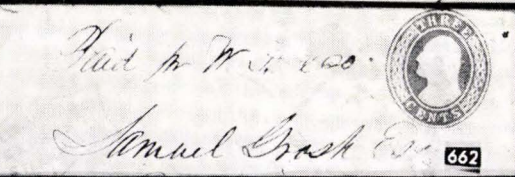 THREE
CENTS
Paid pr W
Samuel Grosh Esq
662